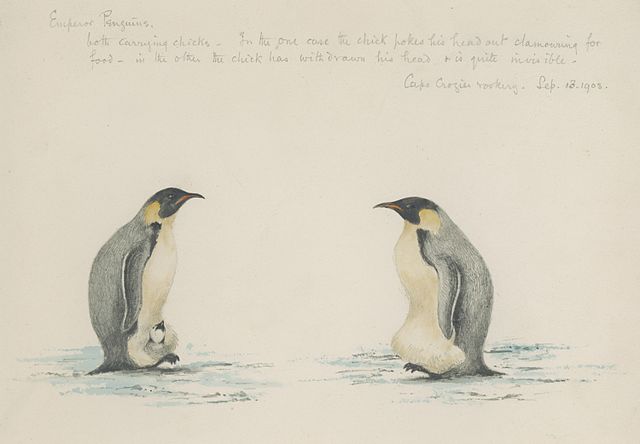 Emperor Penguins.
both carrying chicks - In the one case the chick pokes his head out clamouring for
food - in the other the chick has withdrawn his head & is quite invisible.
Cape Crozier rookery. Sep. 13. 1903.